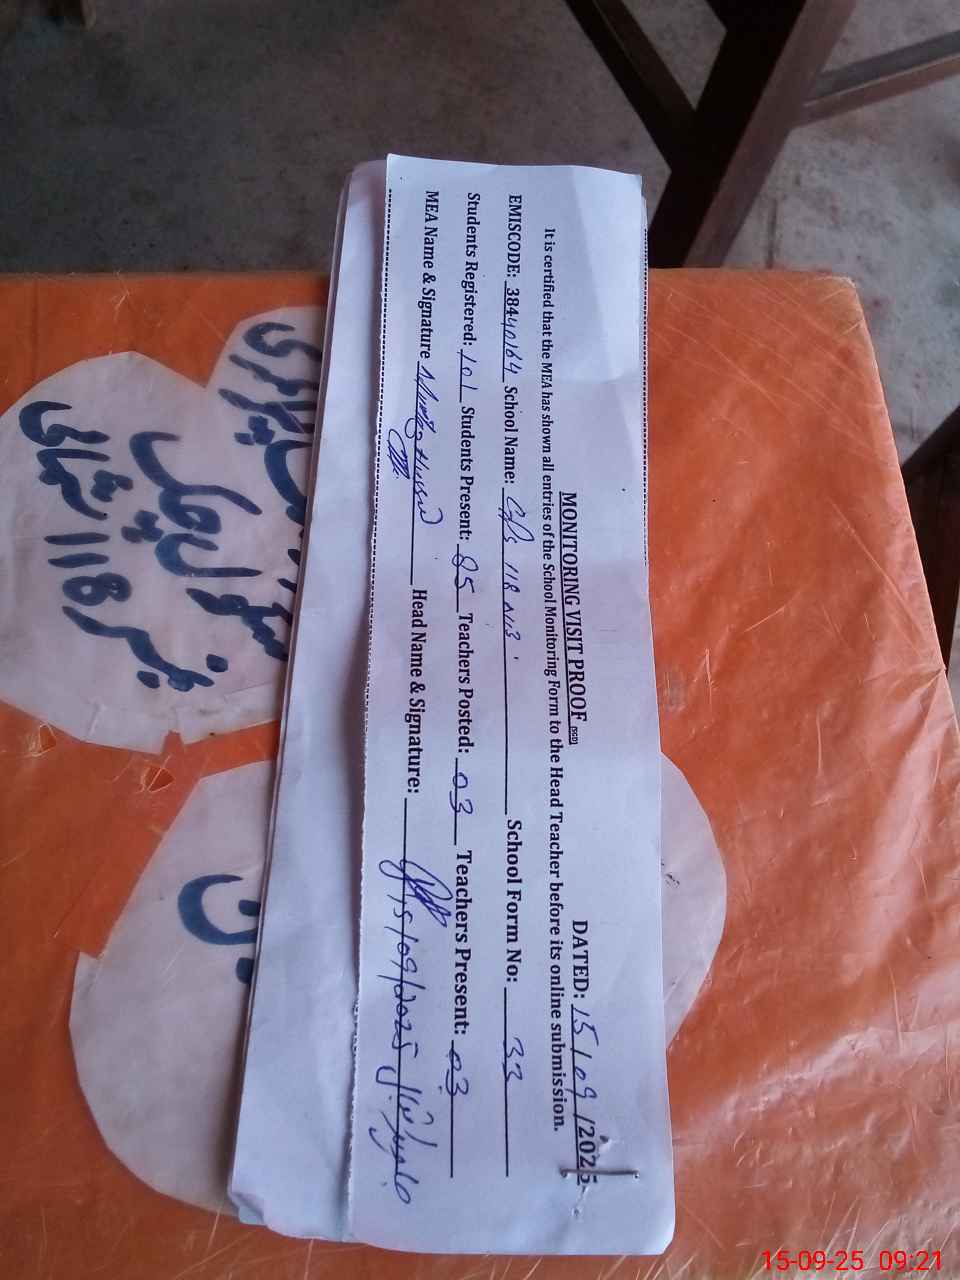 MONITORING VISIT PROOF (SSD)
DATED: 15/09/2025
It is certified that the MEA has shown all entries of the School Monitoring Form to the Head Teacher before its online submission.
EMISCODE: 38440164 School Name: GPS 118 NB School Form No: 33
Students Registered: 101 Students Present: 85 Teachers Posted: 03 Teachers Present: 03
MEA Name & Signature Head Name & Signature: 15/09/2025
118 شمالی
15-09-25 09:21